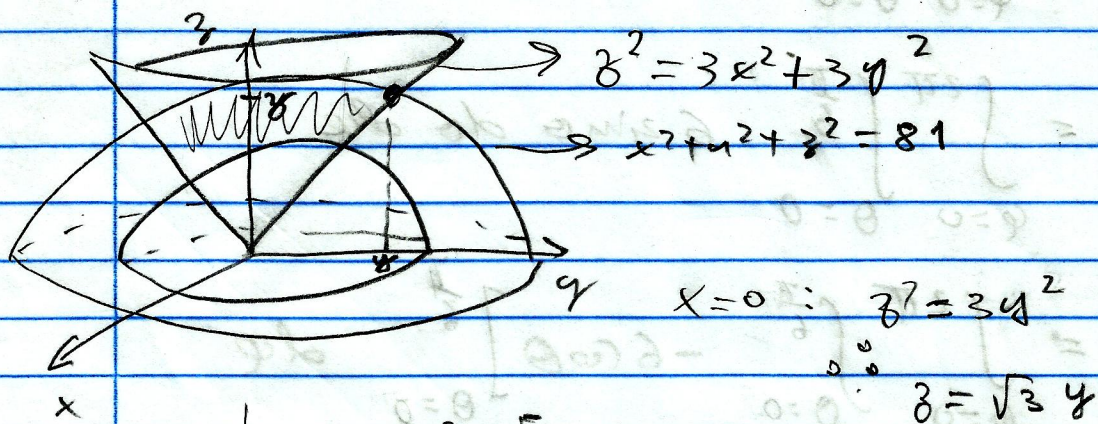 z
z² = 3x² + 3y²
x² + y² + z² = 81
z
y
y
x = 0 : z² = 3y²
∴ z = √3 y
x